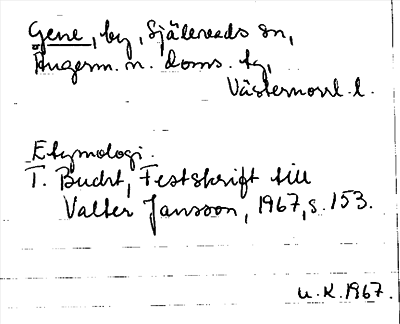 Gene, by, Själevads sn,
Ångerm. n. doms. tg,
Västernorrl. l.
Etymologi.
T. Bucht, Festskrift till
Valter Jansson, 1967, s. 153.
U.K. 1967.